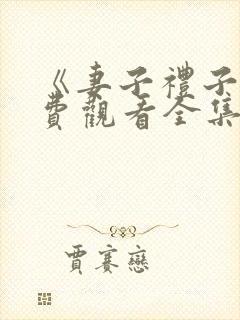 《妻子禮子
費觀看全集
賈賽戀